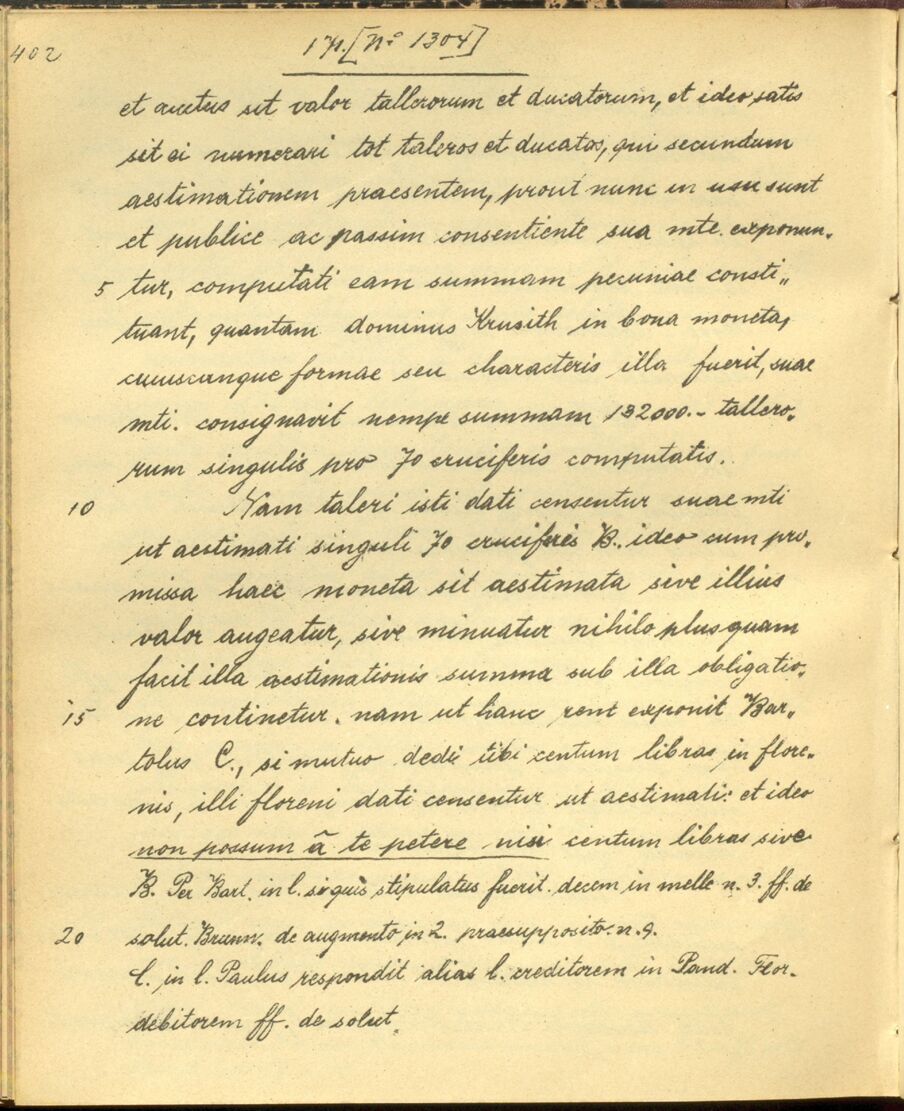 402
171. [No 1304]
et auctus sit valor tallerorum et ducatorum, et ideo satis
sit ei numerari tot taleros et ducatos, qui secundum
aestimationem praesentem, prout nunc in usu sunt
et publice ac passim consentiente sua mte. exponun„
5 tur, computati eam summam pecuniae consti„
tuant, quantam dominus Krusith in bona moneta,
cuiuscunque formae seu characteris illa fuerit, suae
mti. consignavit nempe summam 132000.- tallero„
rum singulis pro 70 cruciferis computatis.
10 Nam taleri isti dati censentur suae mti
ut aestimati singuli 70 cruciferis B. ideo cum pro„
missa haec moneta sit aestimata sive illius
valor augeatur, sive minuatur nihilo plusquam
facit illa aestimationis summa sub illa obligatio„
15 ne continetur. nam ut hanc rem exponit Bar„
tolus C., si mutuo dedi tibi centum libras in flore„
nis, illi floreni dati censentur ut aestimati: et ideo
non possum ã te petere nisi centum libras sive
B. Per Bart. in l. si quis stipulatus fuerit. decem in melle n. 3. ff. de
20 solut. Brunn. de augmento in 2. praesupposito. n. 9.
C. in l. Paulus respondit alias l. creditorem in Pand. Flor.
debitorem ff. de solut.